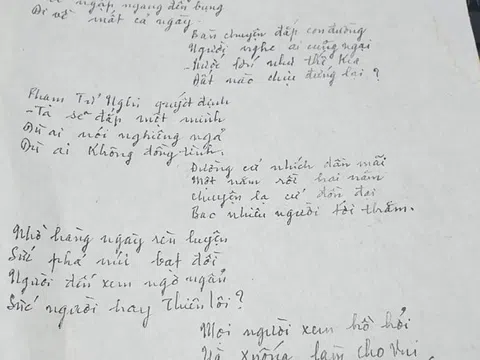 ngập ngang đến bụng
Đi về mất cả ngày.
Bàn chuyện đắp con đường
Người nghe ai cũng ngại
- Nước lớn như thế kia
Đất nào chịu đứng lại ?
Phạm Tử Nghi quyết định
- Ta sẽ đắp một mình
Dù ai nói nghiêng ngả
Dù ai không đồng tình.
Đường cứ nhích dần mãi
Một năm rồi hai năm
chuyện lạ cứ đồn đại
Bao nhiêu người tới thăm.
Nhờ hàng ngày rèn luyện
Sức phá núi bạt đồi
Người đến xem ngơ ngẩn
Sức người hay Thiên lôi ?
Mọi người xem hồ hởi
Và xuống làm cho vui